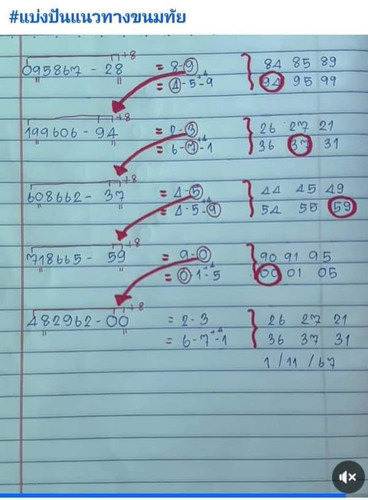 #แบ่งปันแนวทางขนมทัย
+8
095867-28 = 8-9 84 85 89
= 4-5-9 94 95 99
+8
199606-94 = 2-3 26 27 21
= 6-7-1 36 37 31
+8
608662-37 = 4-5 44 45 49
= 4-5-9 54 55 59
+8
718665-59 = 9-0 90 91 95
= 0-1-5 00 01 05
+8
482962-00 = 2-3 26 27 21
= 6-7-1 36 37 31
1/11/67